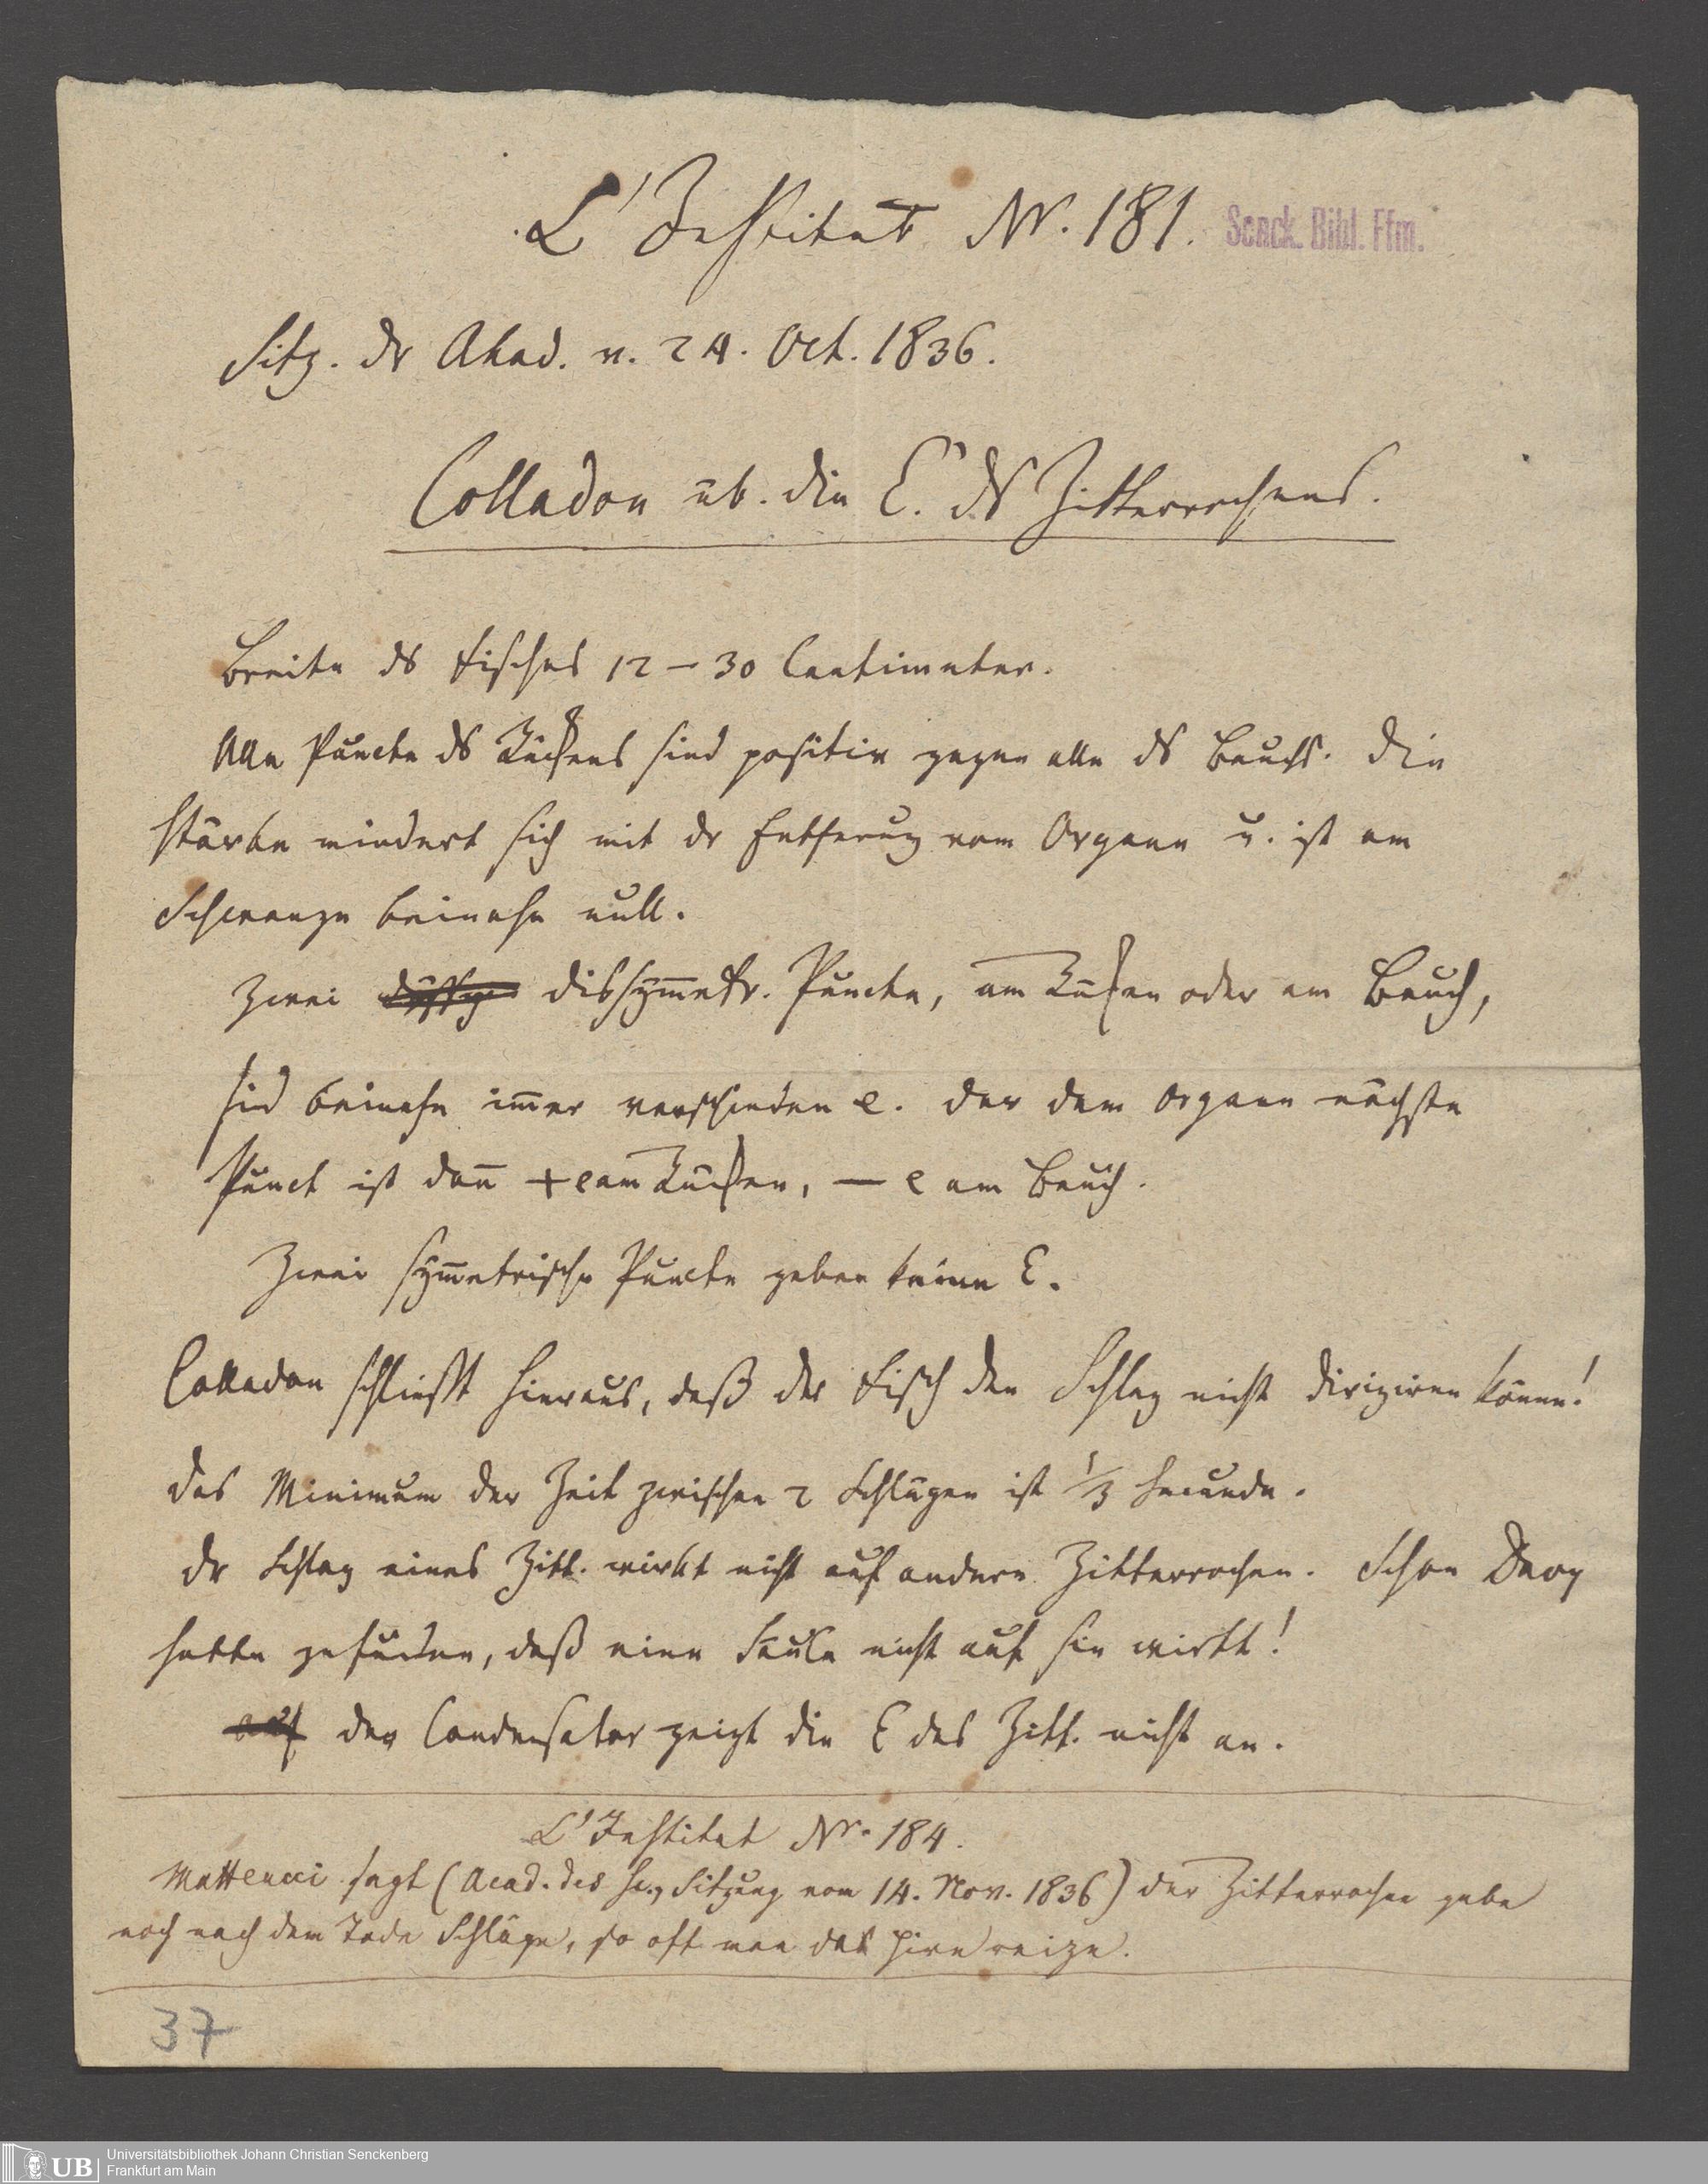 L'Institut Nr. 181.
Senck. Bibl. Ffm.
Sitz. dr Akad. v. 24. Oct. 1836.
Colladon üb. die E. ds Zitterrochens.
Breite ds Fisches 12 – 30 Centimeter.
Alle Puncte ds Rückens sind positiv gegen alle ds Bauchs. Die
Stärke mindert sich mit dr Entfernug vom Organe u. ist am
Schwanze beinahe null.
Zwei dissym̅etr. Puncte, am Rücken oder am Bauch,
sid beinahe im̅er verschieden e. der dem Organe nächste
Punct ist dan̅ + e am Rücken, — e am Bauch.
Zwei sym̅etrische Puncte geben keine E.
Colladon schliesst hieraus, daß der Fisch den Schlag nicht dirigiren könne!
das Minimum der Zeit zwischen 2 Schlägen ist 1/3 Secunde.
dr Schlag eines Zitt. wirkt nicht auf andere Zitterrochen. Schon Davy
hatte gefunden, daß eine Säule nicht auf sie wirkt!
auf der Condensator zeigt die E des Zitt. nicht an.
L'Institut Nr. 184.
Matteucci sagt (Acad. des Sc., Sitzung vom 14. Nov. 1836) der Zitterrochen gebe
noch nach dem Tode Schläge, so oft man das Hirn reize.
37
UB
Universitätsbibliothek Johann Christian Senckenberg
Frankfurt am Main